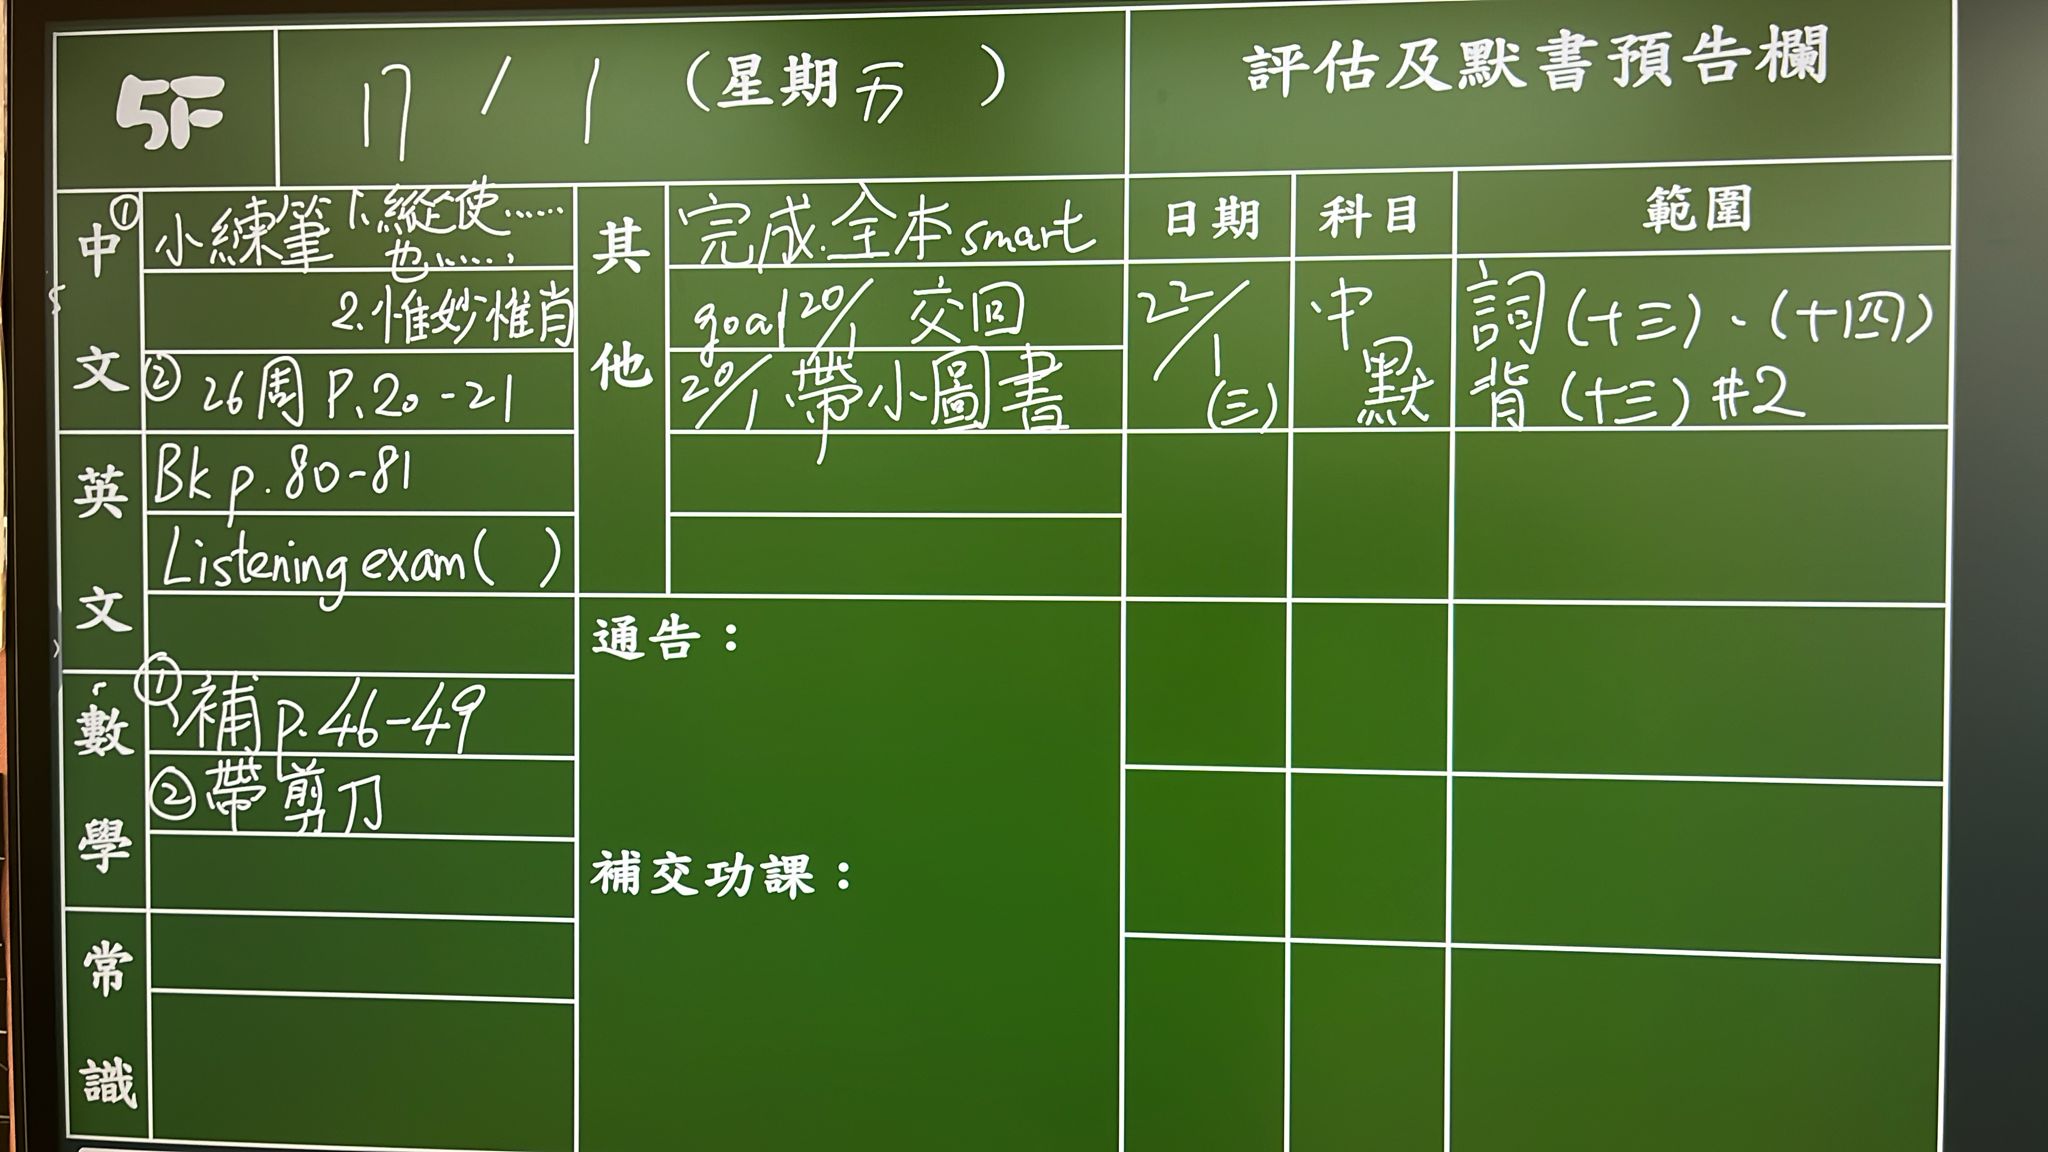 5F
17 / 1 (星期五)
評估及默書預告欄
中文
① 小練筆 1. 縱使……
也……,
2. 惟妙惟肖
② 26周 P.20-21
英文
Bk p.80-81
Listening exam( )
數學
① 補 p.46-49
② 帶剪刀
常識
其他
完成全本smart
goal 20/1 交回
20/1 帶小圖書
通告：
補交功課：
日期 科目 範圍
22/1 (三) 中默 詞(十三)、(十四)
背(十三)#2